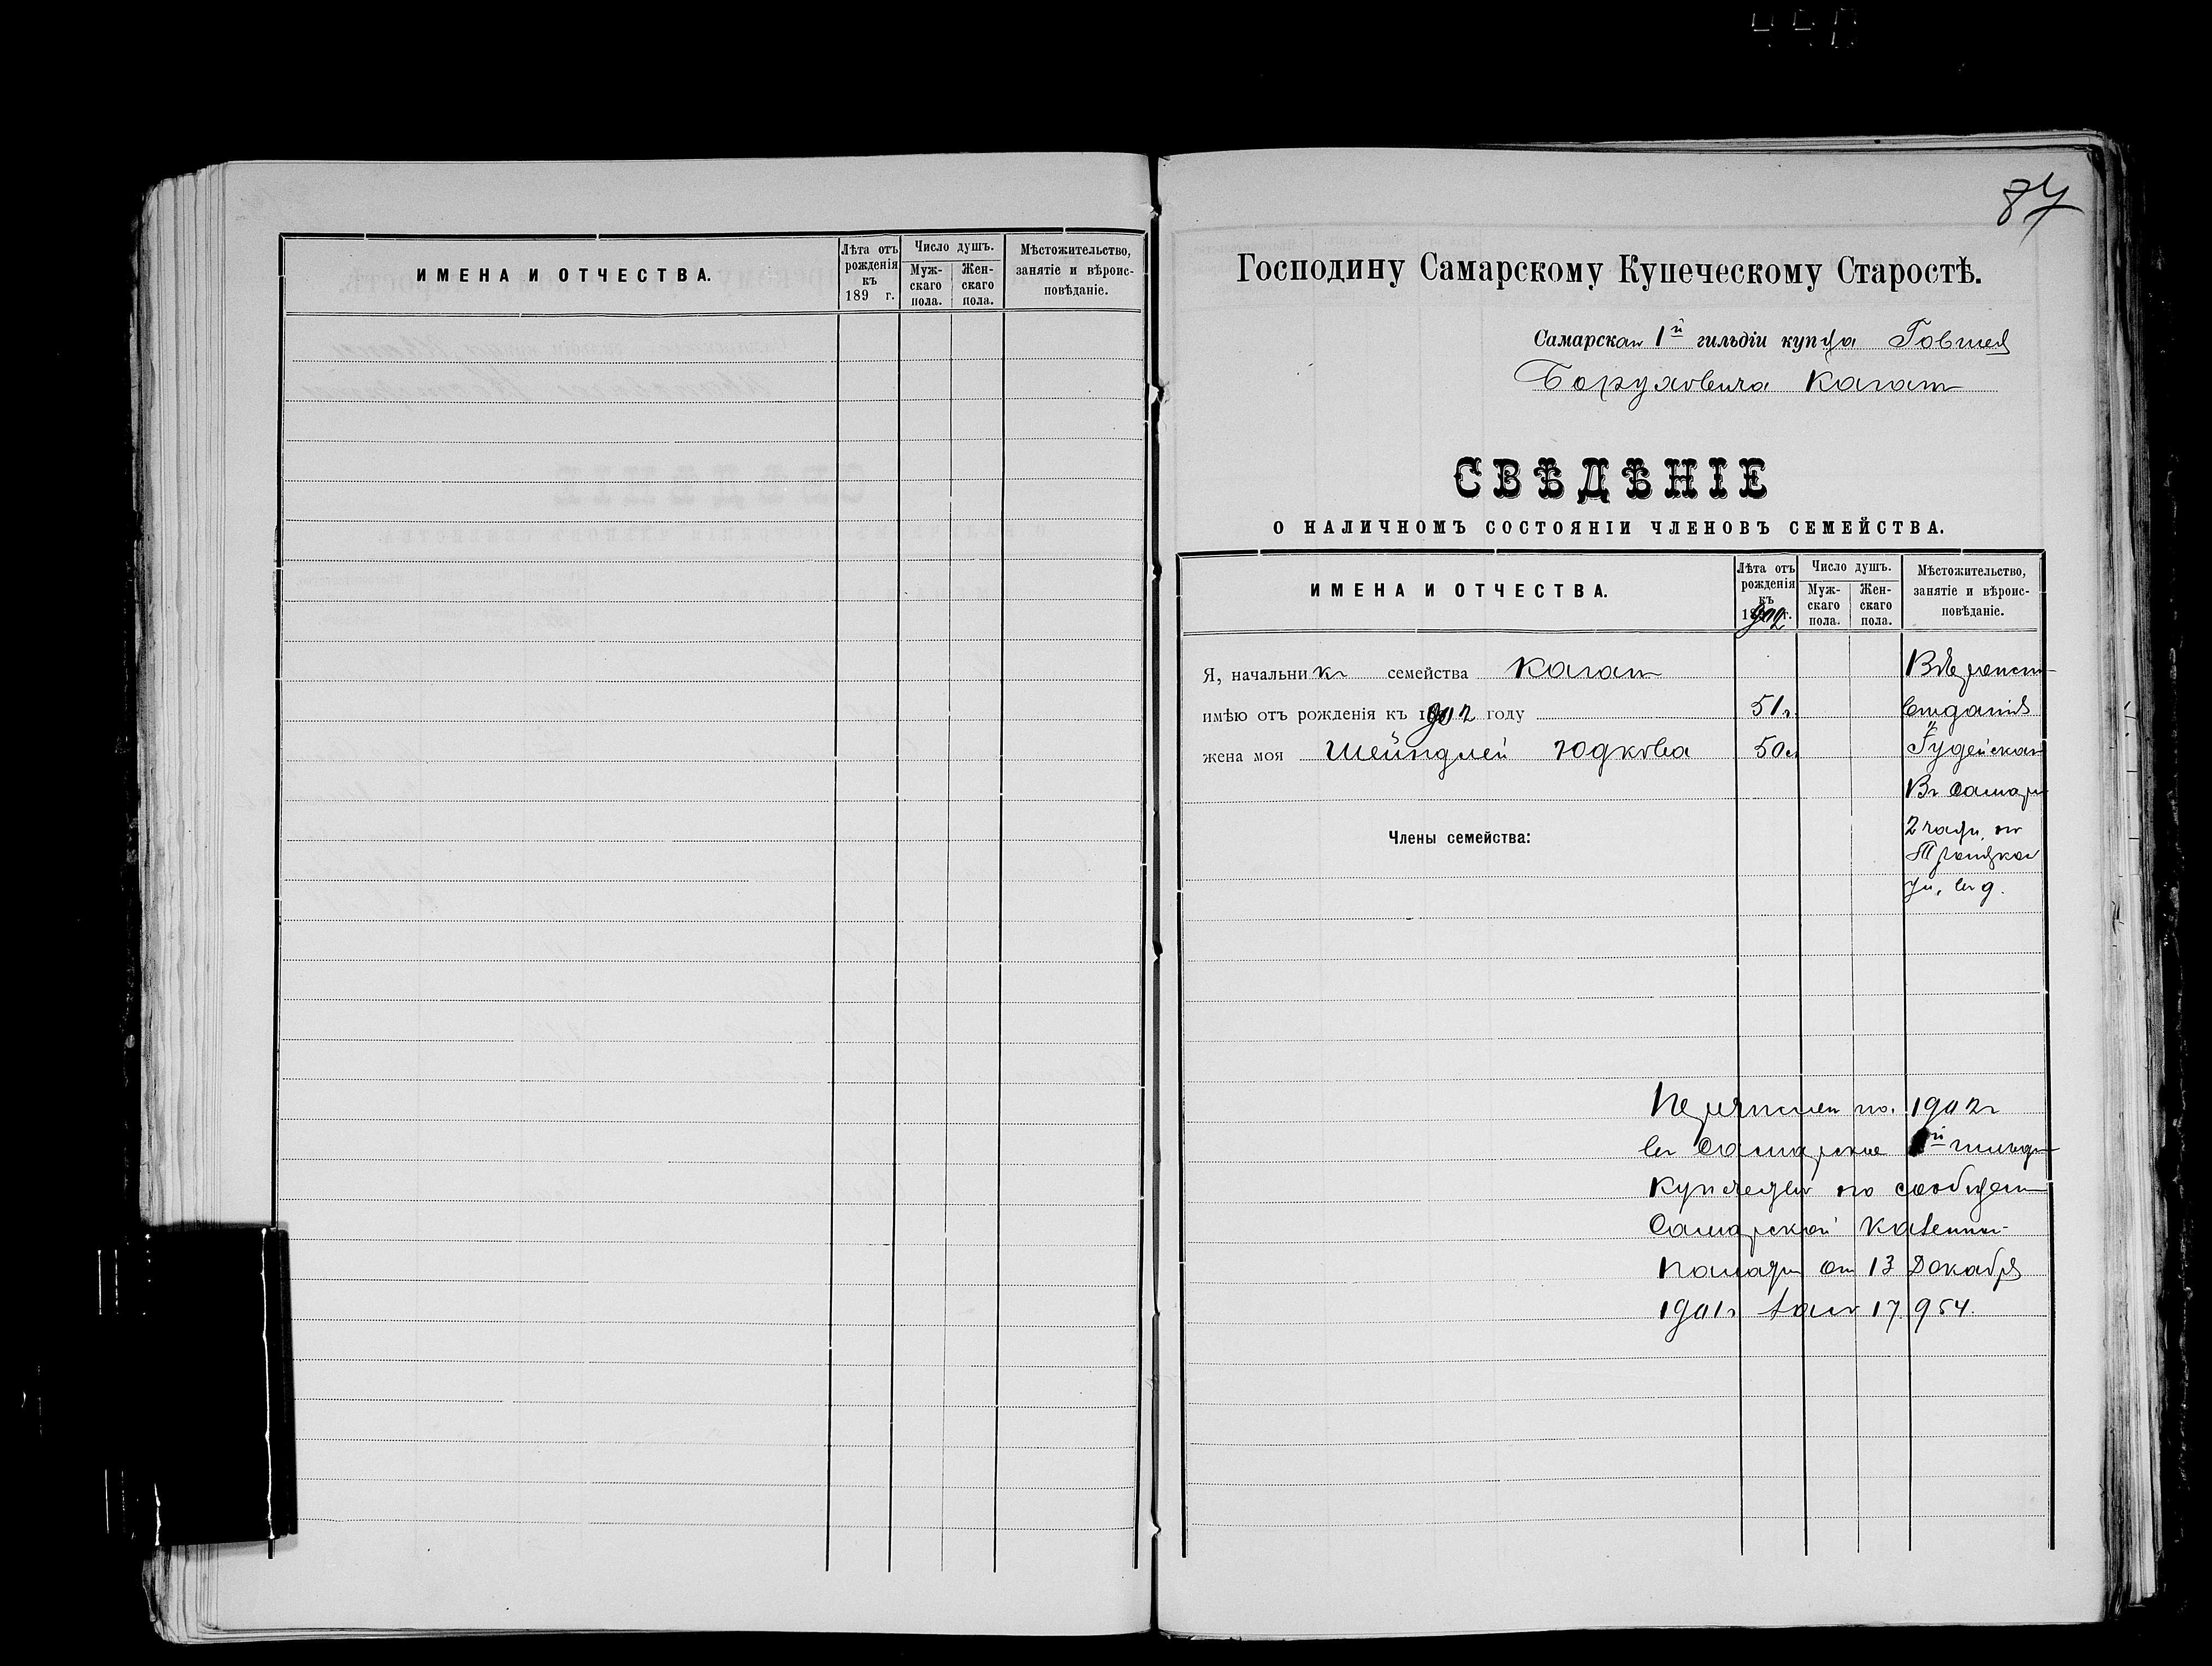 ИМЕНА И ОТЧЕСТВА.
Лѣта отъ рожденія къ 189 г.
Число душъ.
Мужскаго пола.
Женскаго пола.
Мѣстожительство, занятіе и вѣроисповѣданіе.
87
Господину Самарскому Купеческому Старостѣ.
Самарскаго 1й гильдіи купца Говшея
Боруховича Каганъ
СВѢДѢНІЕ
О НАЛИЧНОМЪ СОСТОЯНІИ ЧЛЕНОВЪ СЕМЕЙСТВА.
ИМЕНА И ОТЧЕСТВА.
Лѣта отъ рожденія къ 1902 г.
Число душъ.
Мужскаго пола.
Женскаго пола.
Мѣстожительство, занятіе и вѣроисповѣданіе.
Я, начальникъ семейства Каганъ
имѣю отъ рожденія къ 1902 году 51г.
жена моя Шейндлей Юдкова 50л
Члены семейства:
Вѣроиспо-
вѣданія
Іудейскаго
Въ Самарѣ
2 части, по
Троицкой
ул., въ д.
Перечисленъ по 1902г
въ Самарское 1й гильдіи
купечество по сообщенію
Самарской Казенной
Палаты отъ 13 Декабря
1901г за № 17954.